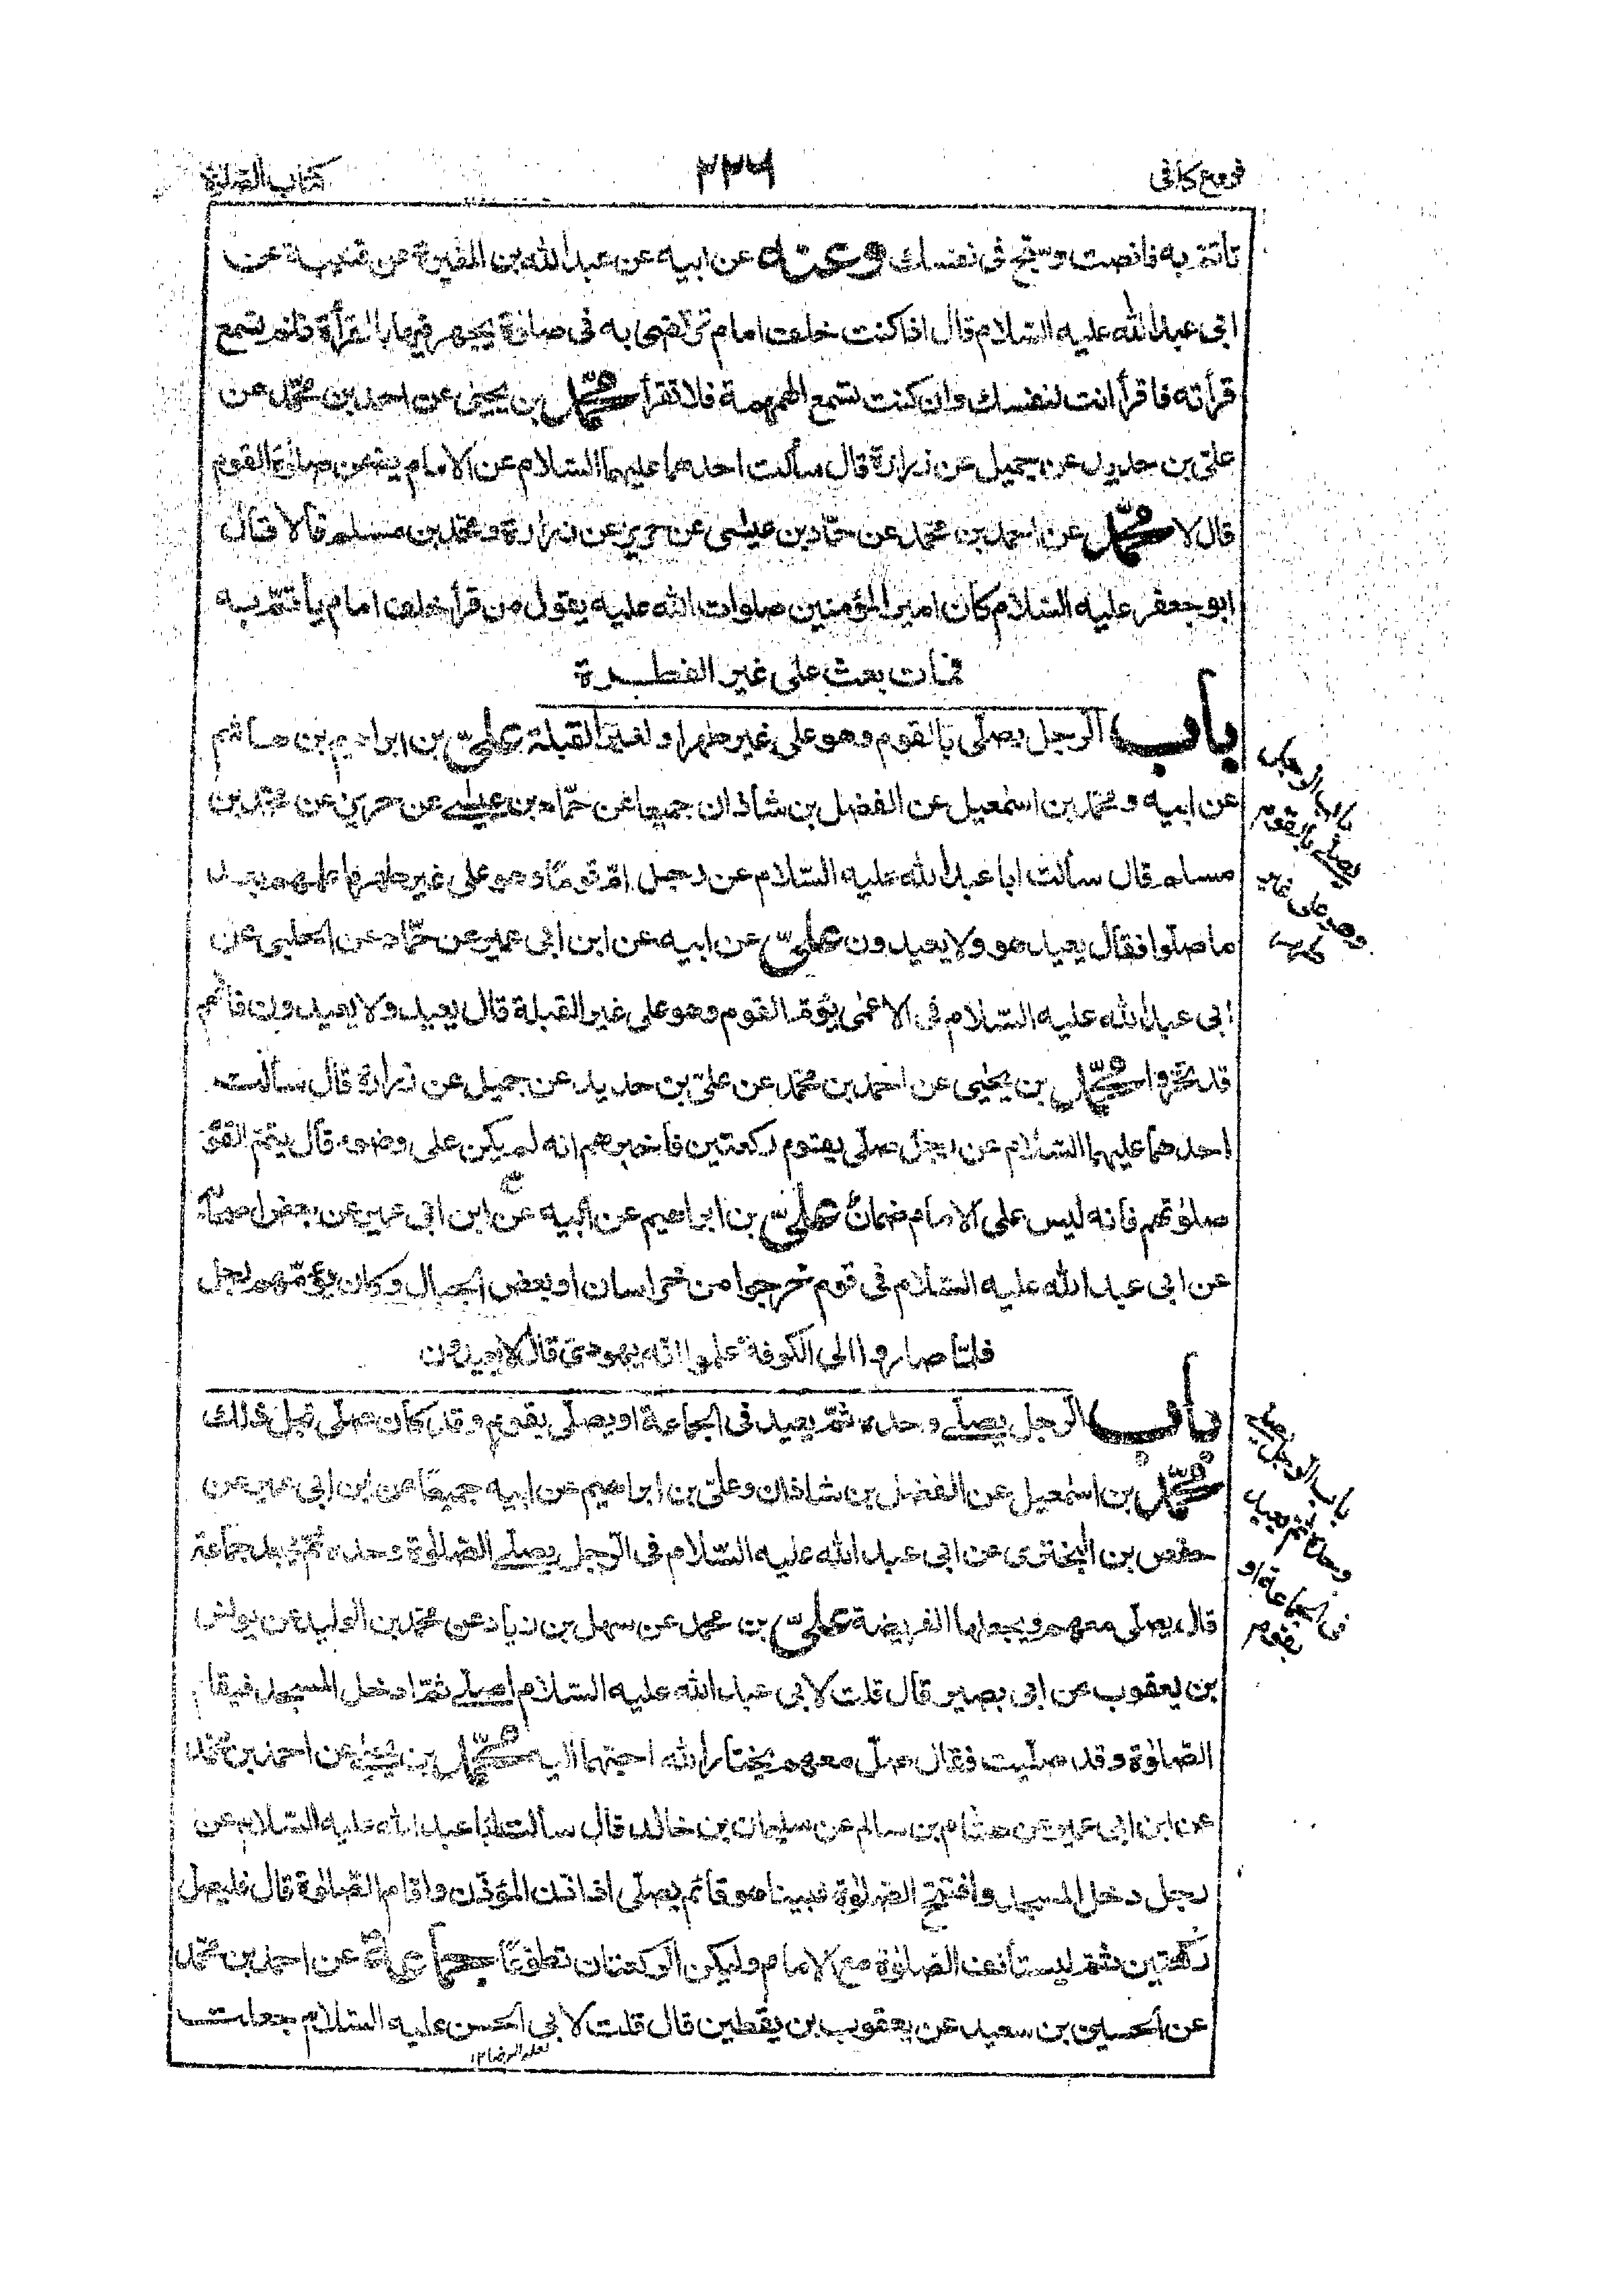 فروع کافی
۲۲۶
کتاب الصلوة
تأتم به فانصت وسبح فی نفسك وعنه عن ابیه عن عبدالله بن المغیرة عن قتیبة عن
ابی عبدالله علیه السلام قال اذا کنت خلف امام ترتضی به فی صلوة یجهر فیها بالقرأة فلم تسمع
قرأته فاقرأ انت لنفسك وان کنت تسمع الهمهمة فلا تقرأ محمد بن یحیی عن احمد بن محمد عن
علی بن حدید عن جمیل عن زرارة قال سألت احدهما علیهما السلام عن الامام یضمن صلوة القوم
قال لا محمد عن احمد بن محمد عن حماد بن عیسی عن حریز عن زرارة ومحمد بن مسلم قالا قال
ابو جعفر علیه السلام کان امیر المؤمنین صلوات الله علیه یقول من قرأ خلف امام یأتم به
فمات بعث علی غیر الفطرة
باب الرجل یصلی بالقوم وهو علی غیر طهر او لغیر القبلة علی بن ابراهیم بن هاشم
عن ابیه ومحمد بن اسمعیل عن الفضل بن شاذان جمیعا عن حماد بن عیسی عن حریز عن محمد بن
مسلم قال سألت ابا عبدالله علیه السلام عن رجل ام قوما وهو علی غیر طهر فاعلمهم بعد
ما صلوا فقال یعید هو ولا یعیدون علی عن ابیه عن ابن ابی عمیر عن حماد عن الحلبی عن
ابی عبدالله علیه السلام فی الاعمی یؤم القوم وهو علی غیر القبلة قال یعید ولا یعیدون فانهم
قد تحروا محمد بن یحیی عن احمد بن محمد عن علی بن حدید عن جمیل عن زرارة قال سألت
احدهما علیهما السلام عن رجل صلی بقوم رکعتین فاخبرهم انه لم یکن علی وضوء قال یتم القوم
صلوتهم فانه لیس علی الامام ضمان علی بن ابراهیم عن ابیه عن ابن ابی عمیر عن بعض اصحابه
عن ابی عبدالله علیه السلام فی قوم خرجوا من خراسان او بعض الجبال وکان یؤمهم رجل
فلما صاروا الی الکوفة علموا انه یهودی قال لا یعیدون
باب الرجل یصلی وحده ثم یعید فی الجماعة او یصلی بقوم وقد کان صلی قبل ذلك
محمد بن اسمعیل عن الفضل بن شاذان وعلی بن ابراهیم عن ابیه جمیعا عن ابن ابی عمیر عن
حفص بن البختری عن ابی عبدالله علیه السلام فی الرجل یصلی الصلوة وحده ثم یجد جماعة
قال یصلی معهم ویجعلها الفریضة علی بن محمد عن سهل بن زیاد عن محمد بن الولید عن یونس
بن یعقوب عن ابی بصیر قال قلت لابی عبدالله علیه السلام اصلی ثم ادخل المسجد فیقام
الصلوة وقد صلیت فقال صل معهم یختار الله احبهما الیه محمد بن یحیی عن احمد بن محمد
عن ابن ابی عمیر عن هشام بن سالم عن سلیمان بن خالد قال سألت ابا عبدالله علیه السلام عن
رجل دخل المسجد وافتتح الصلوة فبینا هو قائم یصلی اذا اذن المؤذن واقام الصلوة قال فلیصل
رکعتین ثم لیستأنف الصلوة مع الامام ولیکن الرکعتان تطوعا جماعة عن احمد بن محمد
عن الحسین بن سعید عن یعقوب بن یقطین قال قلت لابی الحسن علیه السلام جعلت
باب الرجل
یصلی بالقوم
وهو علی غیر
طهر
باب الرجل یصلی
وحده ثم یعید
فی الجماعة او
بقوم